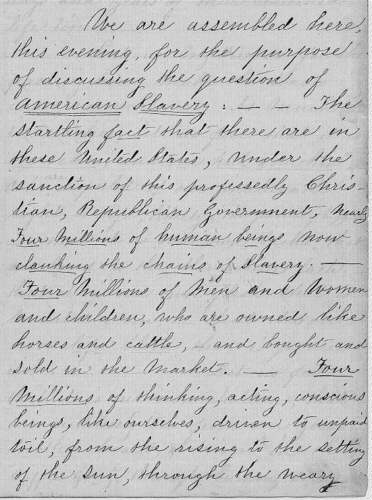 We are assembled here,
this evening, for the purpose
of discussing the question of
American Slavery: — — The
startling fact that there are in
these United States, under the
sanction of this professedly Chris-
tian, Republican Government, nearly
Four Millions of human beings now
clanking the chains of Slavery. —
Four Millions of Men and Women
and children, who are owned like
horses and cattle, — and bought and
sold in the market. — Four
Millions of thinking, acting, conscious
beings, like ourselves, driven to unpaid
toil, from the rising to the setting
of the sun, through the weary